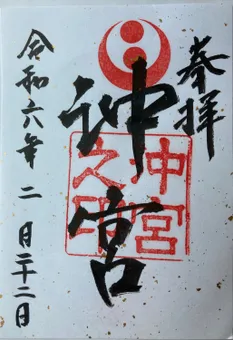 奉拝
沖宮
沖宮之印
令和六年二月二十二日